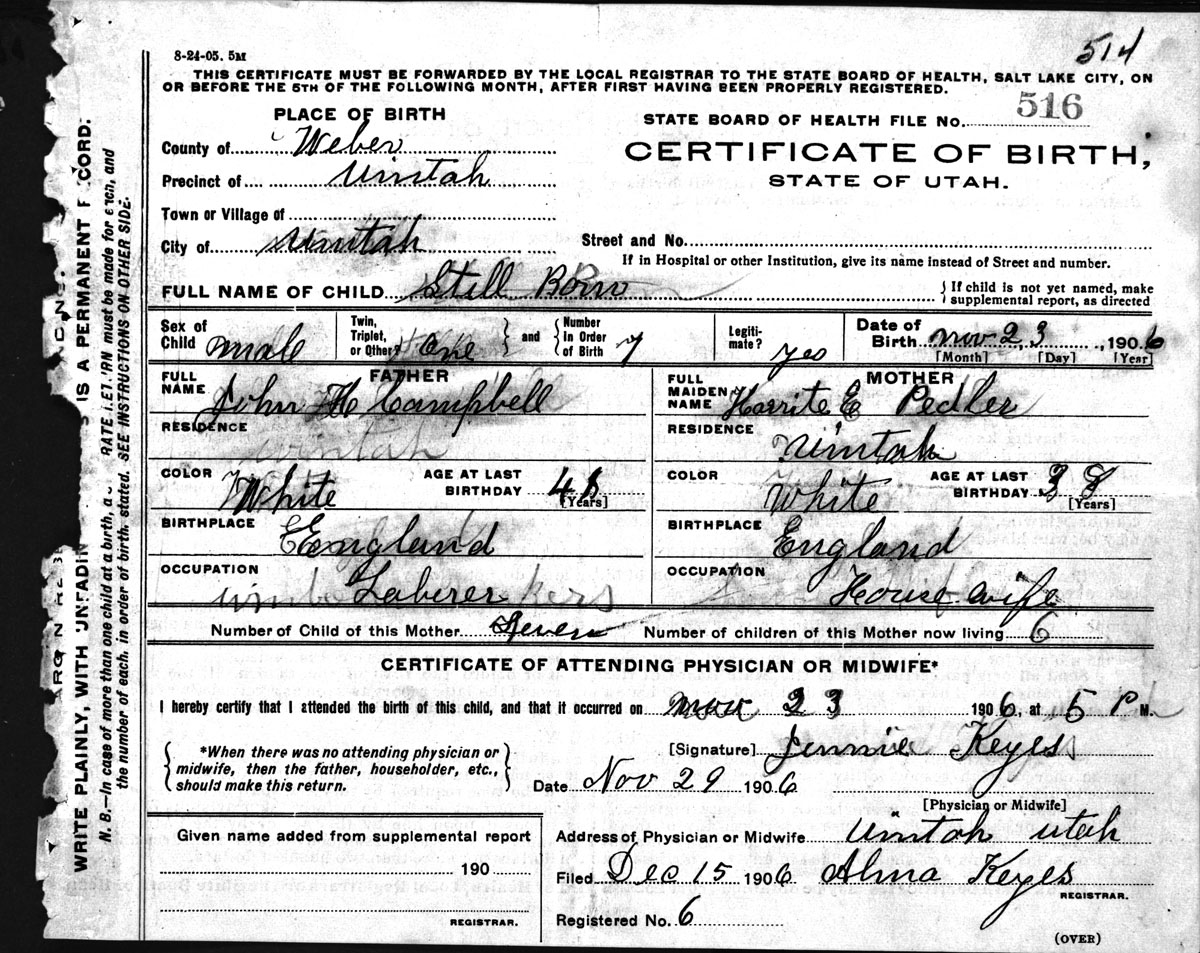 8-24-05. 5M
514
THIS CERTIFICATE MUST BE FORWARDED BY THE LOCAL REGISTRAR TO THE STATE BOARD OF HEALTH, SALT LAKE CITY, ON
OR BEFORE THE 5TH OF THE FOLLOWING MONTH, AFTER FIRST HAVING BEEN PROPERLY REGISTERED.
PLACE OF BIRTH
STATE BOARD OF HEALTH FILE No. 516
County of Weber
CERTIFICATE OF BIRTH,
Precinct of Uintah
STATE OF UTAH.
Town or Village of
City of Uintah
Street and No.
If in Hospital or other Institution, give its name instead of Street and number.
FULL NAME OF CHILD Still Born
{If child is not yet named, make
supplemental report, as directed
Sex of Child male
Twin, Triplet, or Other? One } and { Number in Order of Birth 7
Legitimate? yes
Date of Birth Nov 23, 1906
[Month] [Day] [Year]
FATHER
FULL NAME John H Campbell
RESIDENCE Uintah
COLOR White
AGE AT LAST BIRTHDAY
[Years]
BIRTHPLACE England
OCCUPATION Laberer
MOTHER
FULL MAIDEN NAME Harrite E Pedler
RESIDENCE Uintah
COLOR White
AGE AT LAST BIRTHDAY 38
[Years]
BIRTHPLACE England
OCCUPATION House wife
Number of Child of this Mother Seven
Number of children of this Mother now living 6
CERTIFICATE OF ATTENDING PHYSICIAN OR MIDWIFE*
I hereby certify that I attended the birth of this child, and that it occurred on 23 1906, at 5 P M.
{*When there was no attending physician or
midwife, then the father, householder, etc.,
should make this return.}
[Signature] Jennie Keyes
Date Nov 29 1906
[Physician or Midwife]
Given name added from supplemental report
190
REGISTRAR.
Address of Physician or Midwife Uintah Utah
Filed Dec 15 1906 Alma Keyes
REGISTRAR.
Registered No. 6
(OVER)
WRITE PLAINLY, WITH UNFADIN IS A PERMANENT R CORD.
N. B.—In case of more than one child at a birth, a RATE RETURN must be made for each, and
the number of each, in order of birth, stated. SEE INSTRUCTIONS ON OTHER SIDE.